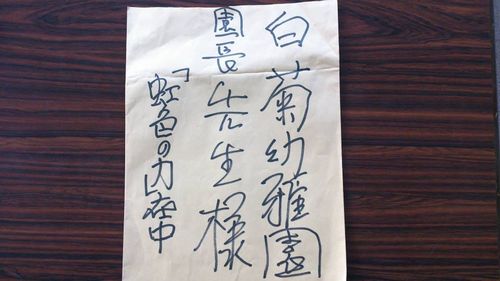 白菊幼稚園
園長先生様
「虹色の内」在中